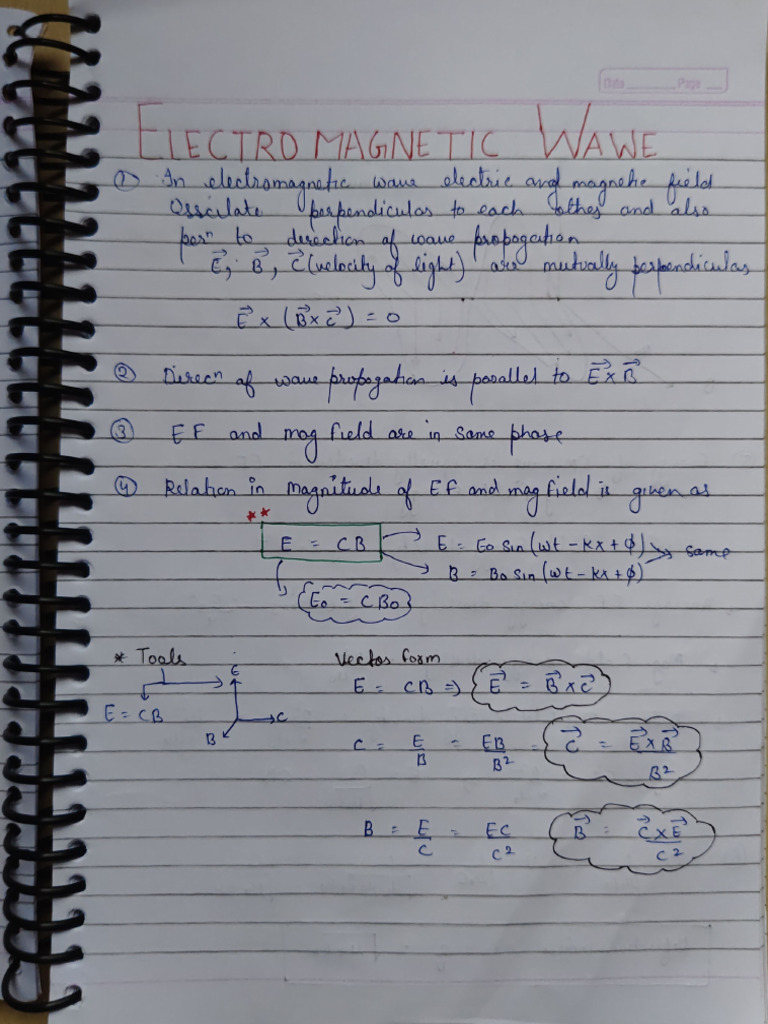 Date Page
ELECTROMAGNETIC WAWE
① In electromagnetic wave electric and magnetic field
Osscilate perpendicular to each other and also
perⁿ to direction of wave propogation
E⃗, B⃗, C⃗ (velocity of light) are mutually perpendicular
E⃗ × (B⃗ × C⃗) = 0
② Direcⁿ of wave propogation is parallel to E⃗ × B⃗
③ EF and mag field are in same phase
④ Relation in magnitude of EF and mag field is given as
**
E = CB E = E₀ sin (ωt - kx + φ)
B = B₀ sin (ωt - kx + φ) same
E₀ = CB₀
* Tools Vector form
E
E = CB => E⃗ = B⃗ × C⃗
E = CB C
B C = E/B = EB/B² = C⃗ = E⃗ × B⃗ / B²
B = E/C = EC/C² B⃗ = C⃗ × E⃗ / C²